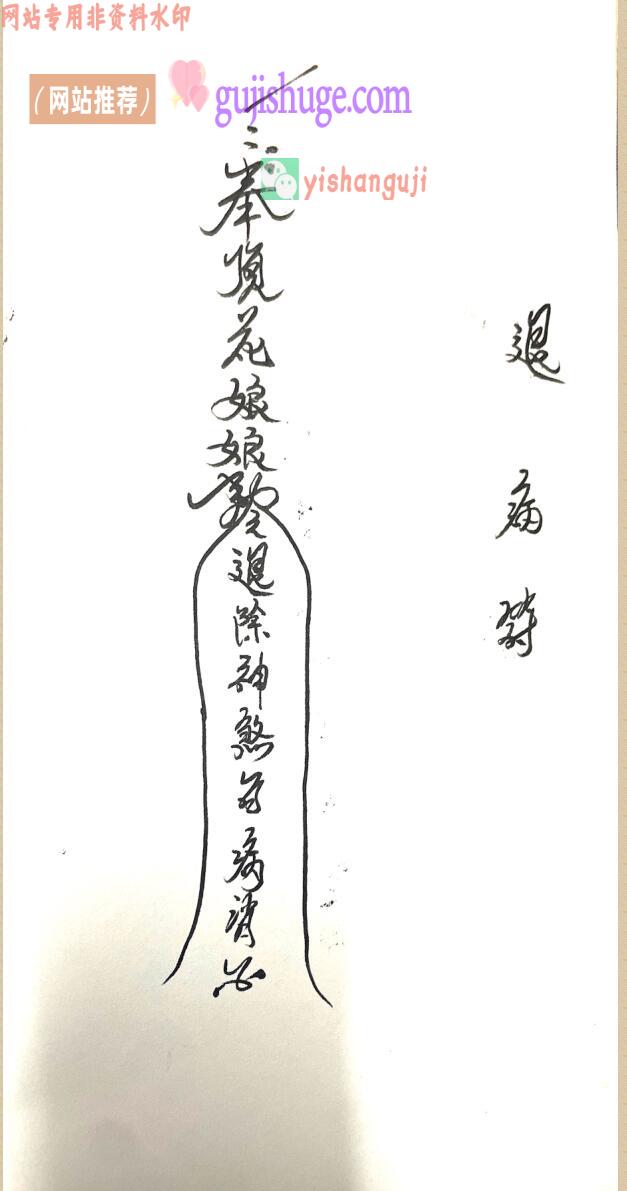 网站专用非资料水印
(网站推荐)
gujishuge.com
yishanguji
退病符
奉
花娘娘
退除神煞百病消